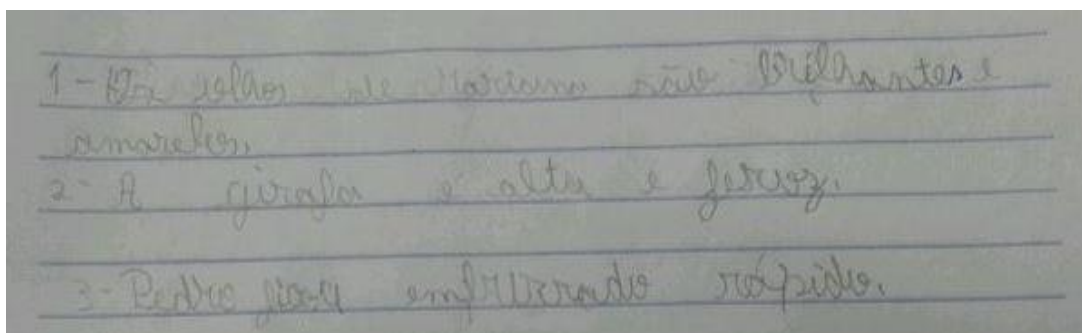 1 - Os olhos de Mariana são brilhantes e
amarelos.
2 - A girafa é alta e feroz.
3 - Pedro ficou enfurrado rápido.